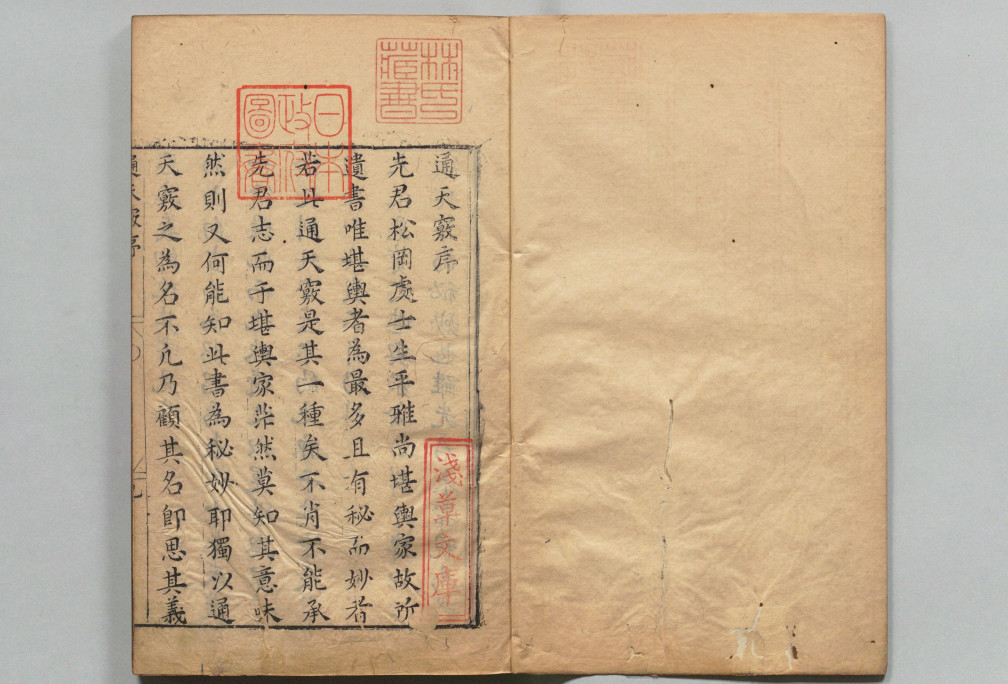 通天竅序
先君松岡處士生平雅尚堪輿家故所
遺書唯堪輿者為最多且有秘而妙者
若此通天竅是其一種矣不肖不能承
先君志而于堪輿家茫然莫知其意味
然則又何能知此書為秘妙耶獨以通
天竅之為名不凡乃顧其名即思其義
通天竅序
林氏藏書
日本政府圖書
淺草文庫